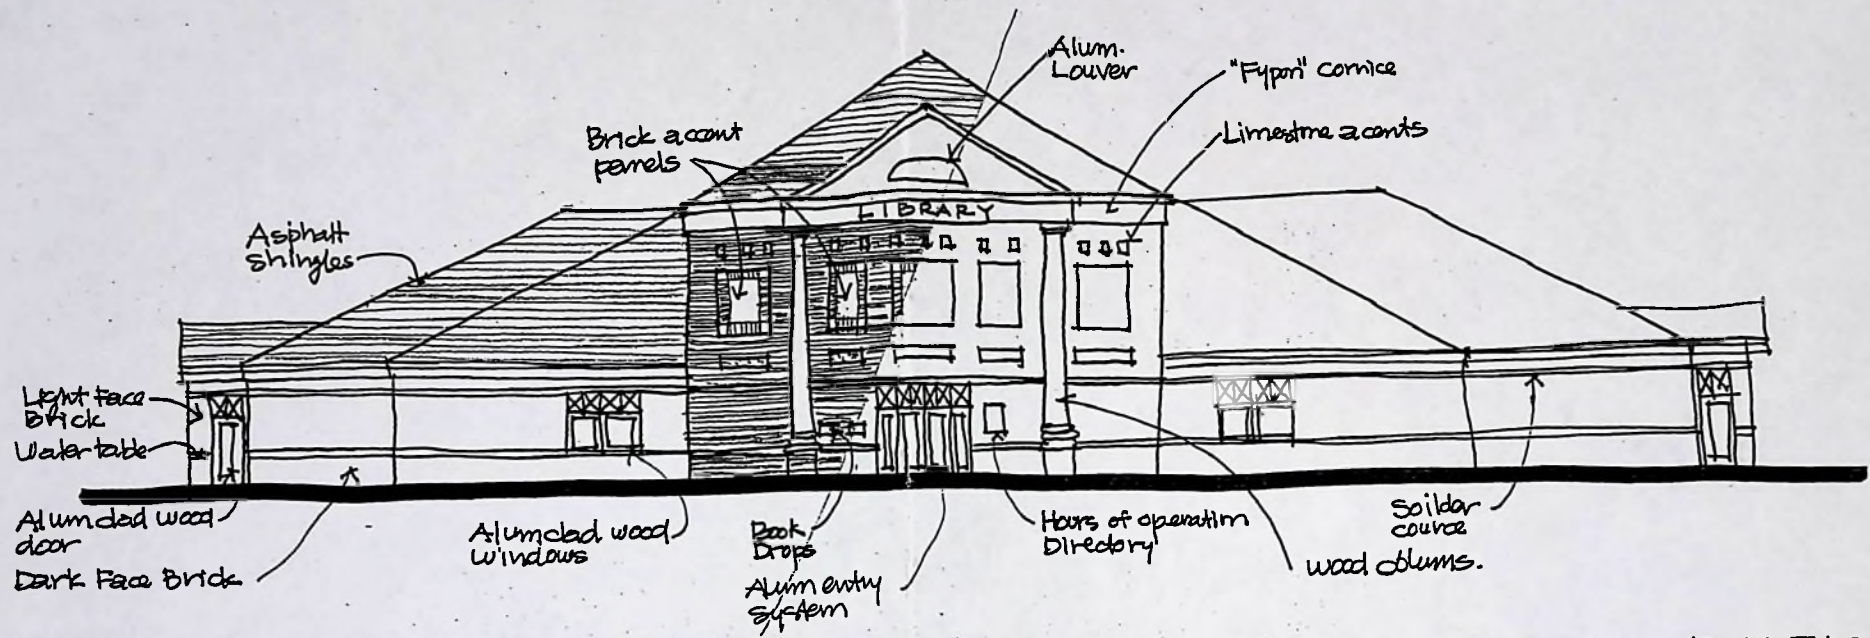 Alum.
Louver
"Fypon" cornice
Brick accent
panels
Limestone accents
LIBRARY
Asphalt
shingles
Light Face
Brick
Water table
Alum clad wood
door
Dark Face Brick
Alum clad wood
windows
Book
Drops
Alum entry
system
Hours of operation
Directory
wood colums.
Soilder
cource